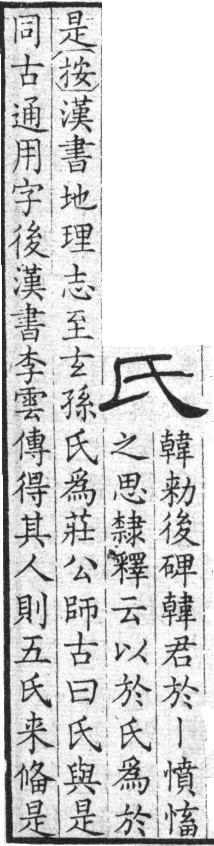 氏
韓勑後碑韓君於丨憤慉
之思隸釋云以於氏爲於
是按漢書地理志至玄孫氏爲莊公師古曰氏與是
同古通用字後漢書李雲傳得其人則五氏来俻是